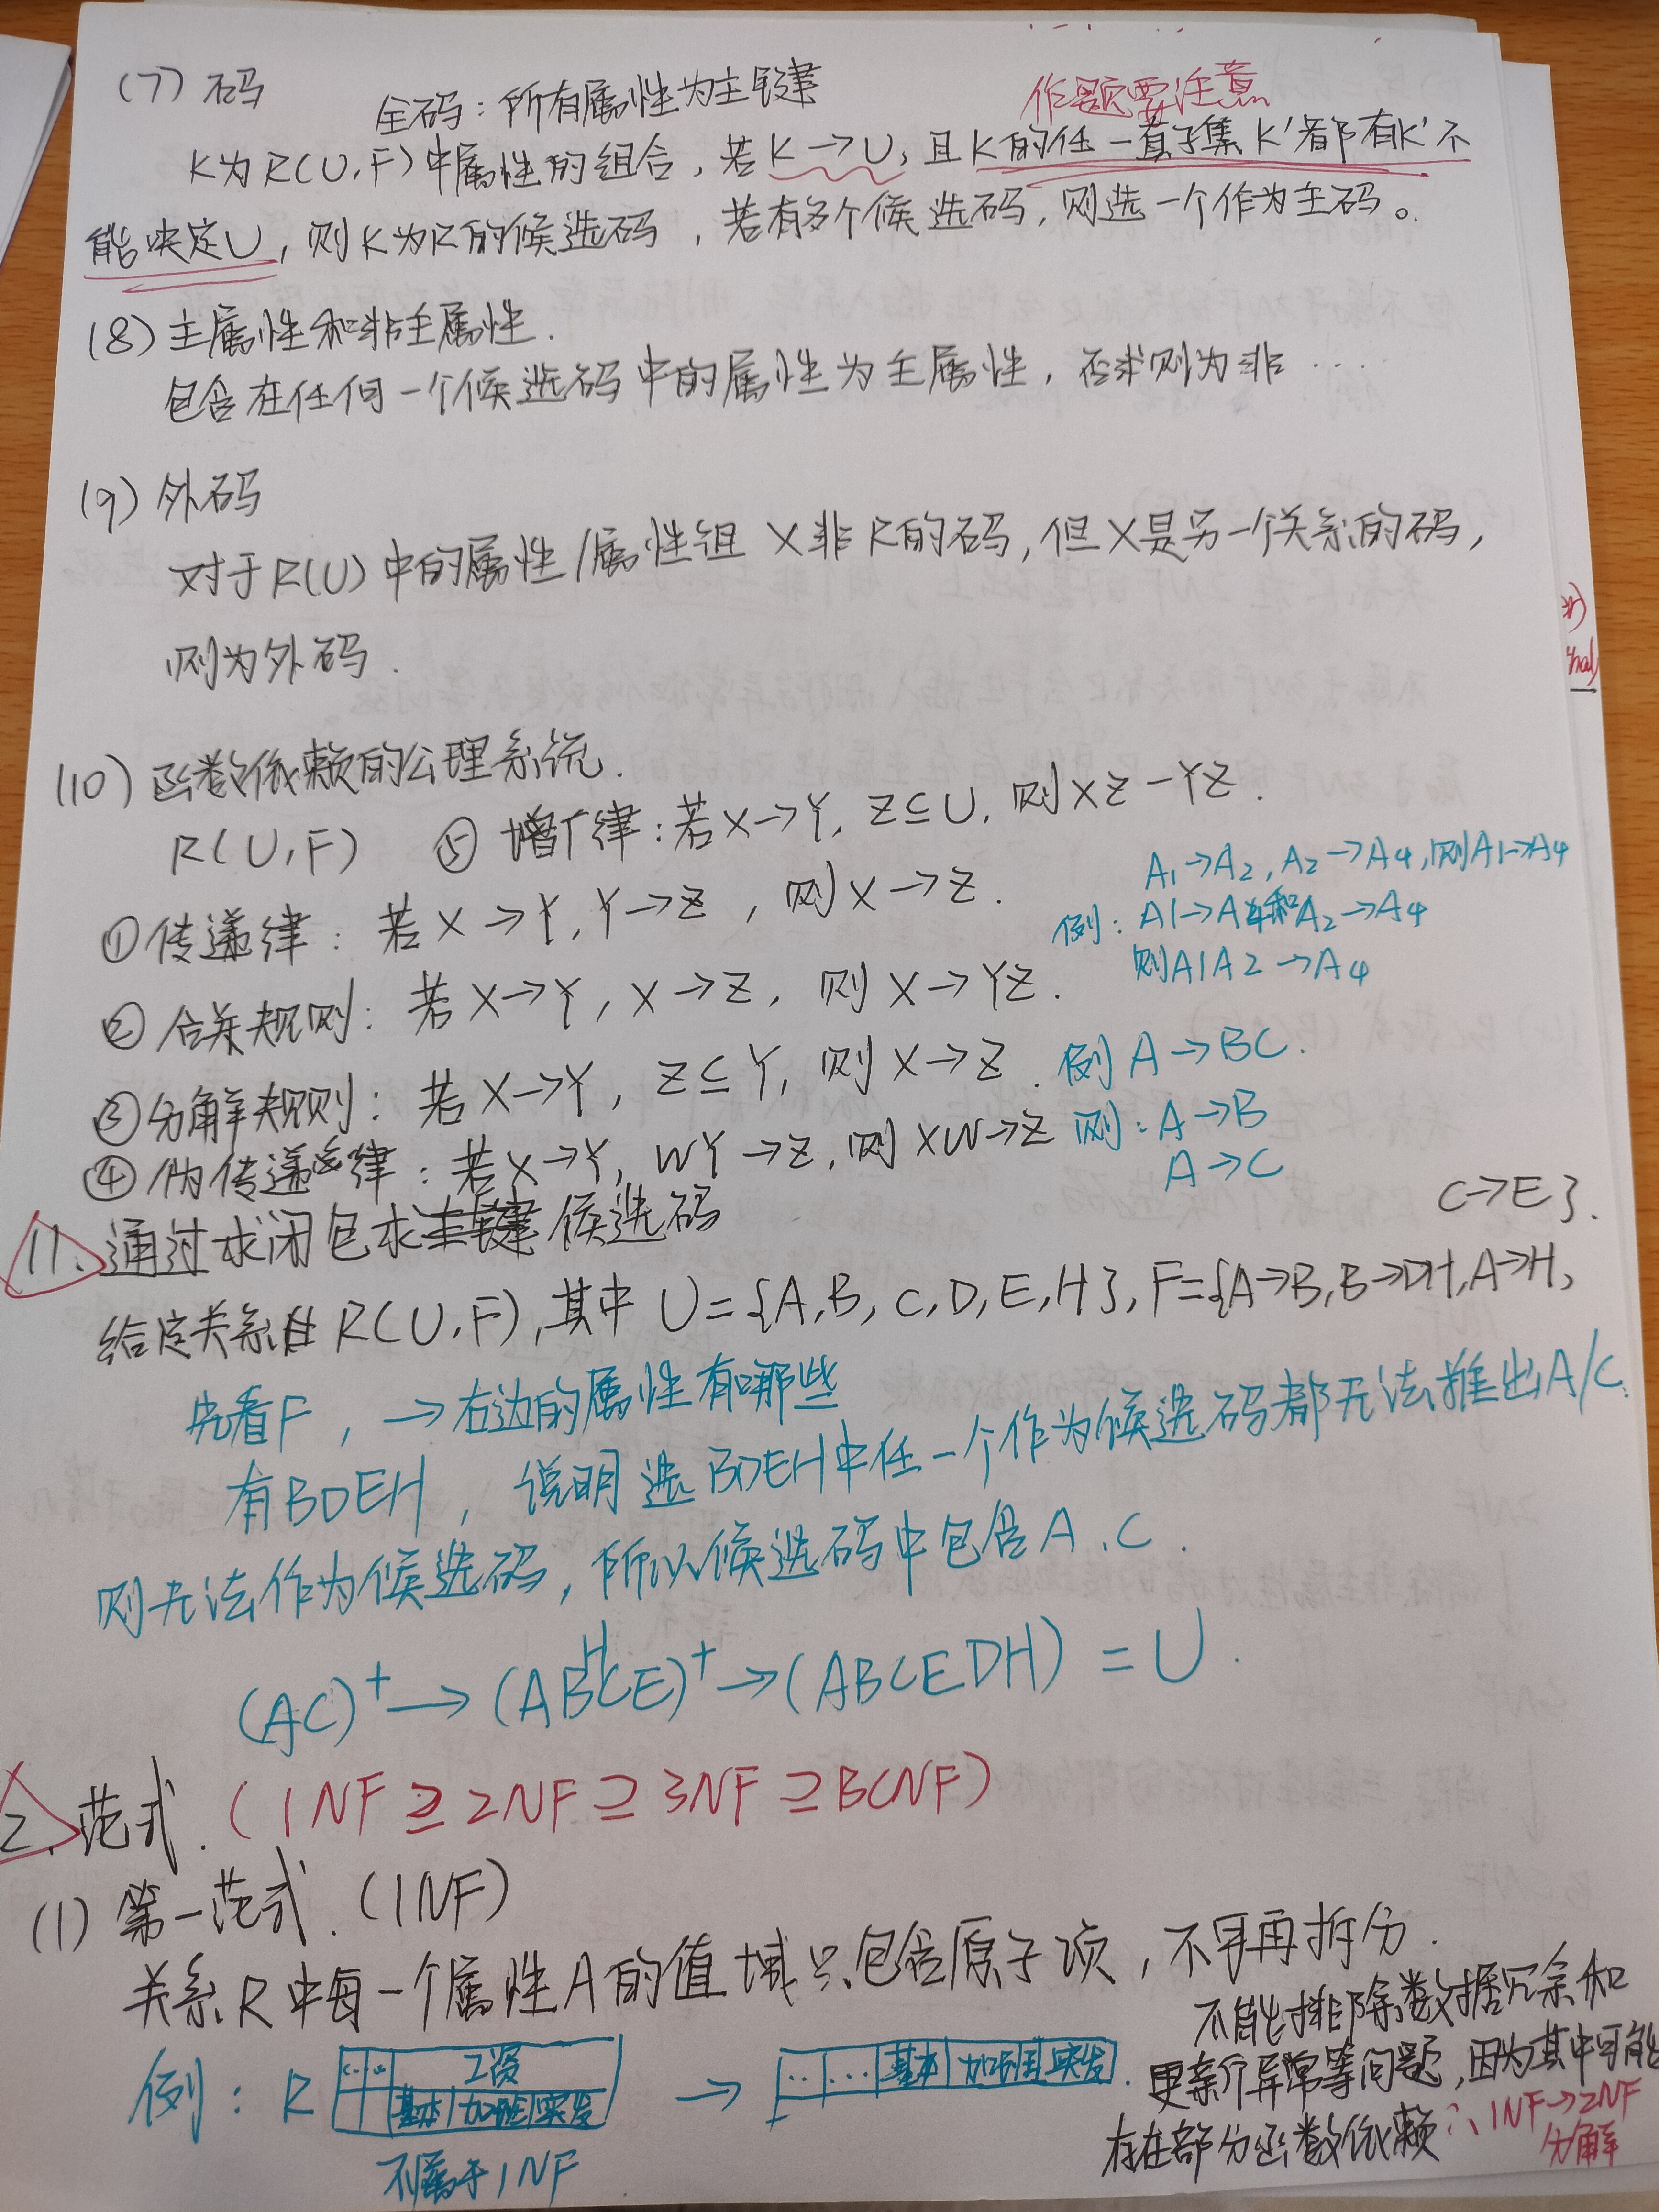 (7) 码
全码：所有属性为主键
作题要注意
K为R(U,F)中属性的组合，若K→U，且K的任一真子集K'都有K'不
能决定U，则K为R的候选码，若有多个候选码，则选一个作为主码。
(8) 主属性和非主属性.
包含在任何一个候选码中的属性为主属性，否则为非…
(9) 外码
对于R(U)中的属性/属性组 X非R的码，但X是另一个关系的码，
则为外码.
(10) 函数依赖的公理系统.
R(U,F) ⑤ 增广律：若X→Y, Z⊆U, 则XZ-YZ.
①传递律：若X→Y, Y→Z，则X→Z.
A1→A2, A2→A4, 则A1→A4
例：A1→A4和A2→A4
则A1A2→A4
②合并规则：若X→Y, X→Z, 则X→YZ.
③分解规则：若X→Y, Z⊆Y, 则X→Z. 例 A→BC.
④伪传递律：若X→Y, WY→Z, 则XW→Z 则：A→B
A→C
11. 通过求闭包求候选码
C→E}.
给定关系R(U,F),其中U={A,B,C,D,E,H}, F={A→B,B→DH,A→H,
先看F，→右边的属性有哪些
有BDEH，说明选BDEH中任一个作为候选码都无法推出A/C.
则无法作为候选码，所以候选码中包含A、C.
(AC)⁺→(ABHCE)⁺→(ABCEDH)=U.
2. 范式. (1NF⊇2NF⊇3NF⊇BCNF)
(1) 第一范式. (1NF)
关系R中每一个属性A的值域只包含原子项，不可再拆分.
不能排除数据冗余和
更新异常等问题，因为其中可能
存在部分函数依赖 ∴1NF→2NF
分解
例：R 工资
基本 加班 奖发 → … … 基本 加班 奖发.
不属于1NF